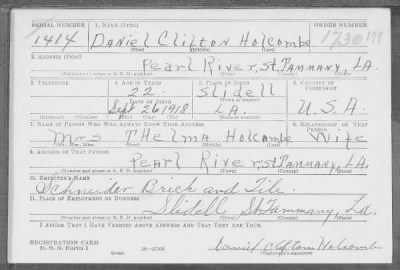 SERIAL NUMBER 1. NAME (Print) ORDER NUMBER
1414 Daniel Clifton Holcombe 1730
(First) (Middle) (Last)
2. ADDRESS (Print)
Pearl River, St. Tammany, LA.
(Number and street or R. F. D. number) (Town) (County) (State)
3. TELEPHONE 4. AGE IN YEARS 5. PLACE OF BIRTH 6. COUNTRY OF CITIZENSHIP
22 Slidell
DATE OF BIRTH (Town or county)
Sept 26 1918 LA. U.S.A.
7. NAME OF PERSON WHO WILL ALWAYS KNOW YOUR ADDRESS 8. RELATIONSHIP OF THAT PERSON
Mrs Thelma Holcombe Wife
9. ADDRESS OF THAT PERSON
Pearl River, St. Tammany, LA.
(Number and street or R. F. D. number) (Town) (County) (State)
10. EMPLOYER'S NAME
Schneider Brick and Tile.
11. PLACE OF EMPLOYMENT OR BUSINESS
Slidell St. Tammany, La.
(Number and street or R. F. D. number) (Town) (County) (State)
I AFFIRM THAT I HAVE VERIFIED ABOVE ANSWERS AND THAT THEY ARE TRUE.
REGISTRATION CARD
D. S. S. Form 1 (over) Daniel Clifton Holcombe
(Registrant's signature)